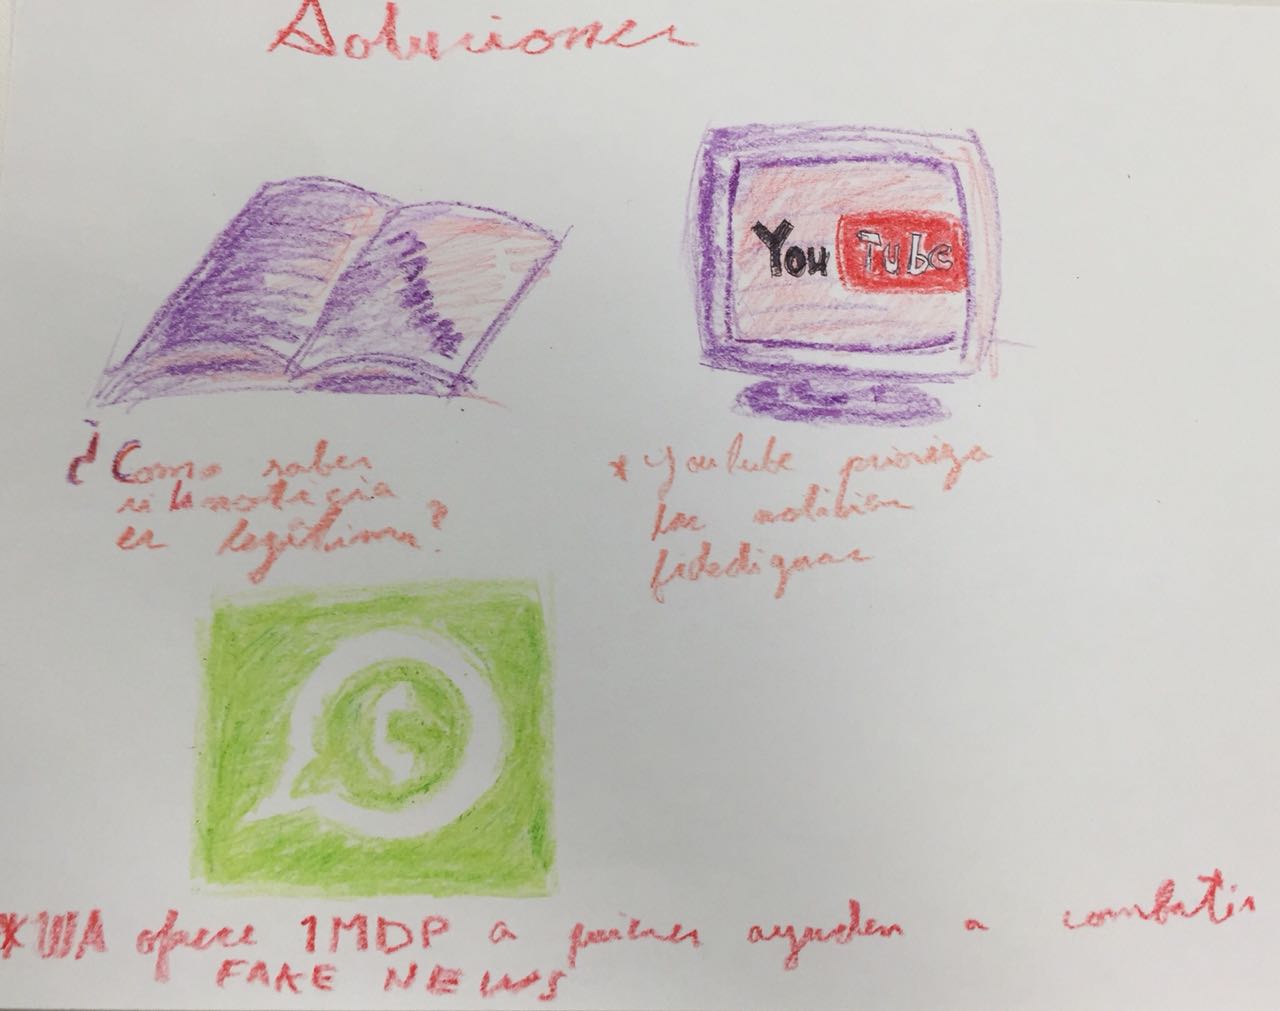 Soluciones
You Tube
¿Como saber
si la noticia
es legítima?
* YouTube prioriza
las noticias
fidedignas
*WA ofrece 1MDP a quienes ayuden a combatir
FAKE NEWS